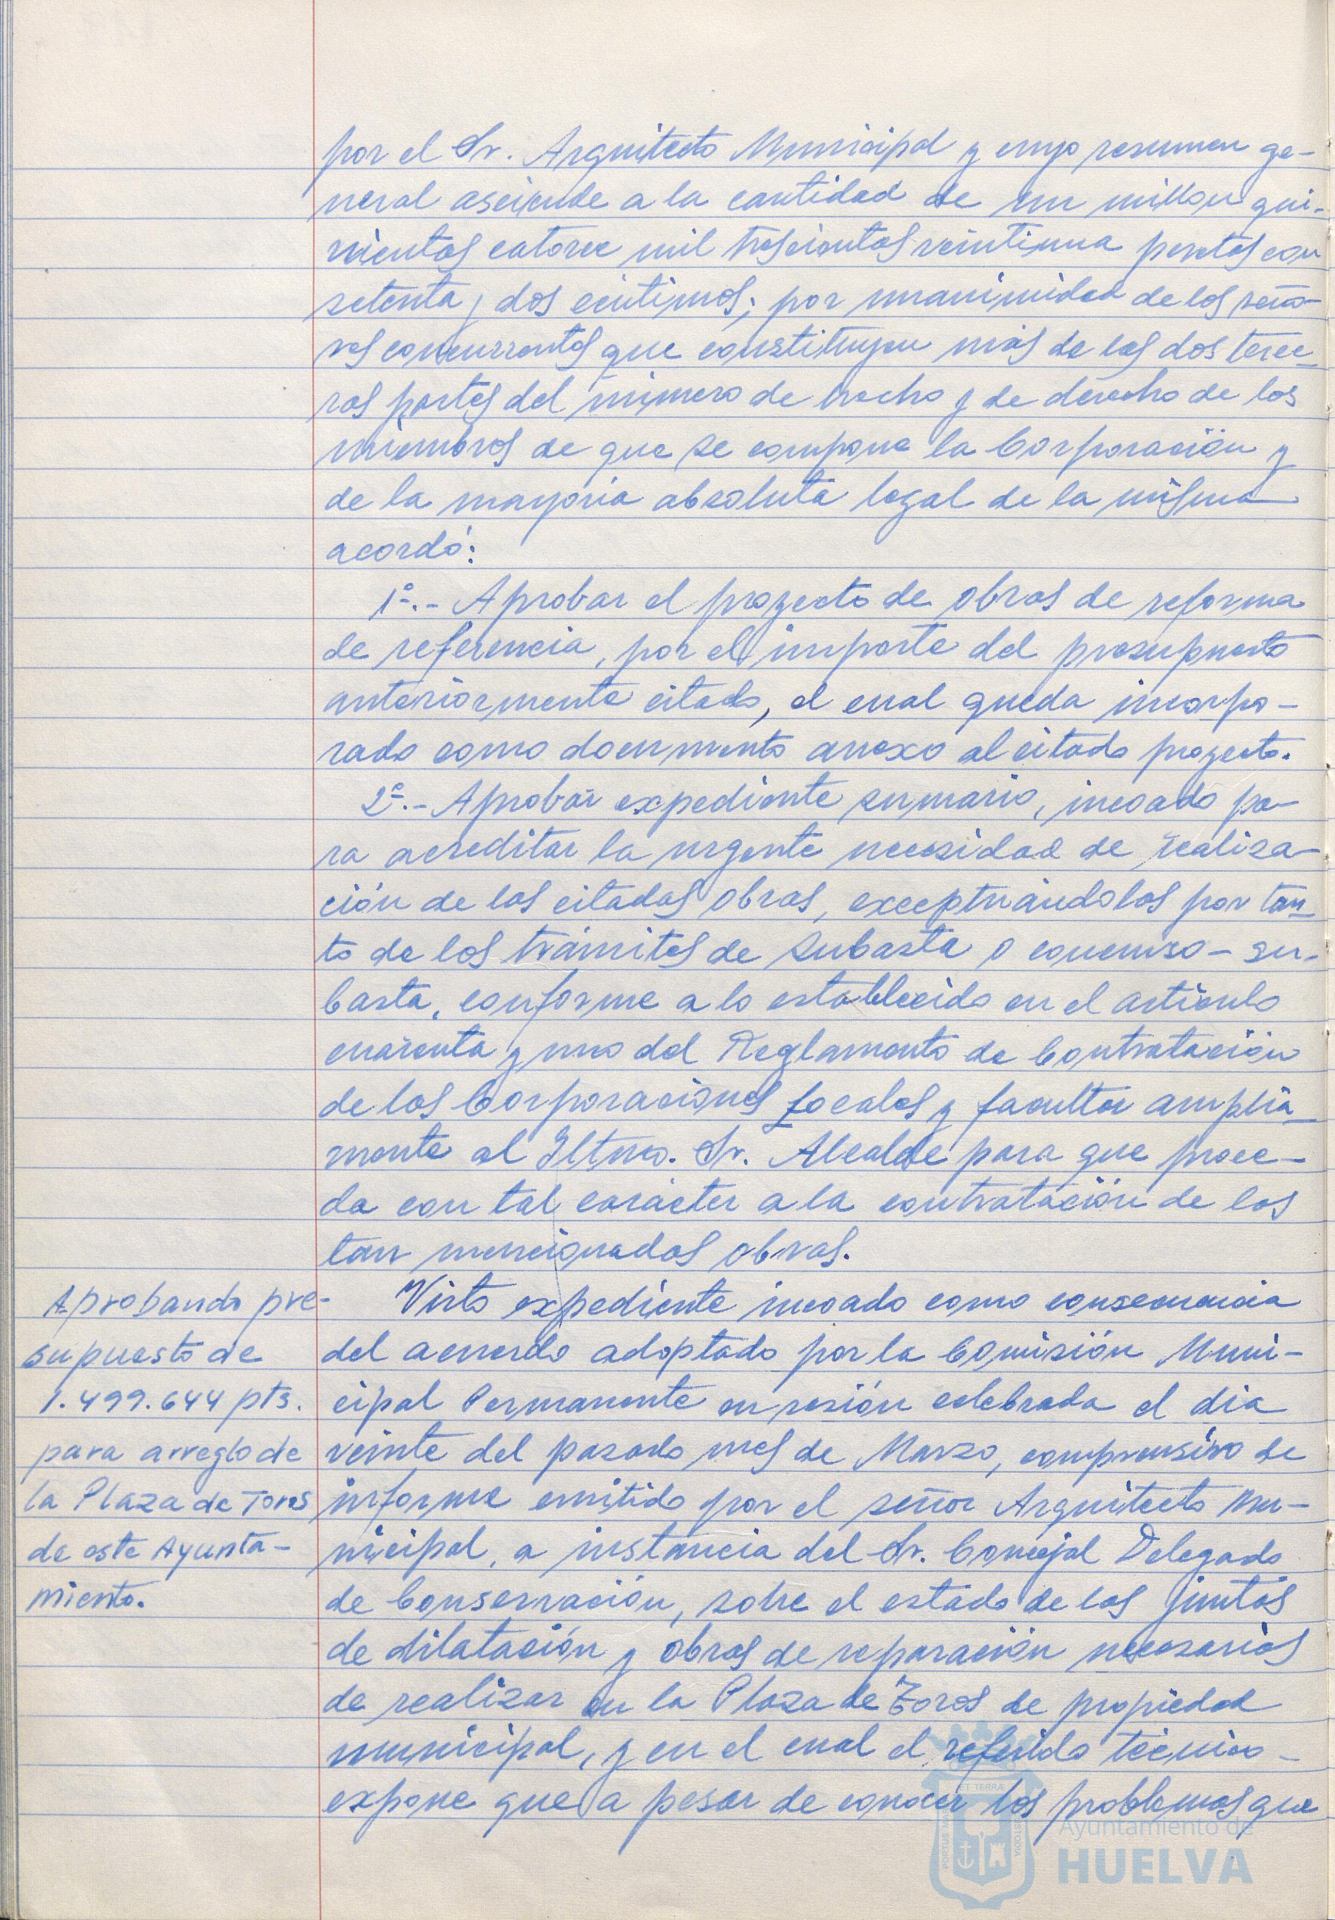 por el Sr. Arquitecto Municipal y cuyo resumen ge-
neral asciende a la cantidad de un millon qui-
nientas catorce mil trescientas veintiuna pesetas con
setenta y dos céntimos; por unanimidad de los seño-
res concurrentes que constituyen más de las dos terce-
ras partes del número de hecho y de derecho de los
miembros de que se compone la Corporación y
de la mayoría absoluta legal de la misma
acordó:
1º.- Aprobar el proyecto de obras de reforma
de referencia, por el importe del presupuesto
anteriormente citado, el cual queda incorpo-
rado como documento anexo al citado proyecto.
2º.- Aprobar expediente sumario, incoado pa-
ra acreditar la urgente necesidad de realiza-
ción de las citadas obras, exceptuándolas por tan-
to de los trámites de subasta o concurso-su-
basta, conforme a lo establecido en el artículo
cuarenta y uno del Reglamento de Contratación
de las Corporaciones Locales y facultar amplia-
mente al Iltmo. Sr. Alcalde para que proce-
da con tal carácter a la contratación de las
tan mencionadas obras.
Aprobando pre-
supuesto de
1.499.644 pts.
para arreglo de
la Plaza de Toros
de este Ayunta-
miento.
Visto expediente incoado como consecuencia
del acuerdo adoptado por la Comisión Muni-
cipal Permanente en sesión celebrada el dia
veinte del pasado mes de Marzo, comprensivo de
informe emitido por el señor Arquitecto Mu-
nicipal, a instancia del Sr. Concejal Delegado
de Conservación, sobre el estado de las juntas
de dilatación y obras de reparación necesarias
de realizar en la Plaza de Toros de propiedad
municipal, y en el cual el referido técnico
expone que a pesar de conocer los problemas que
Ayuntamiento de
HUELVA